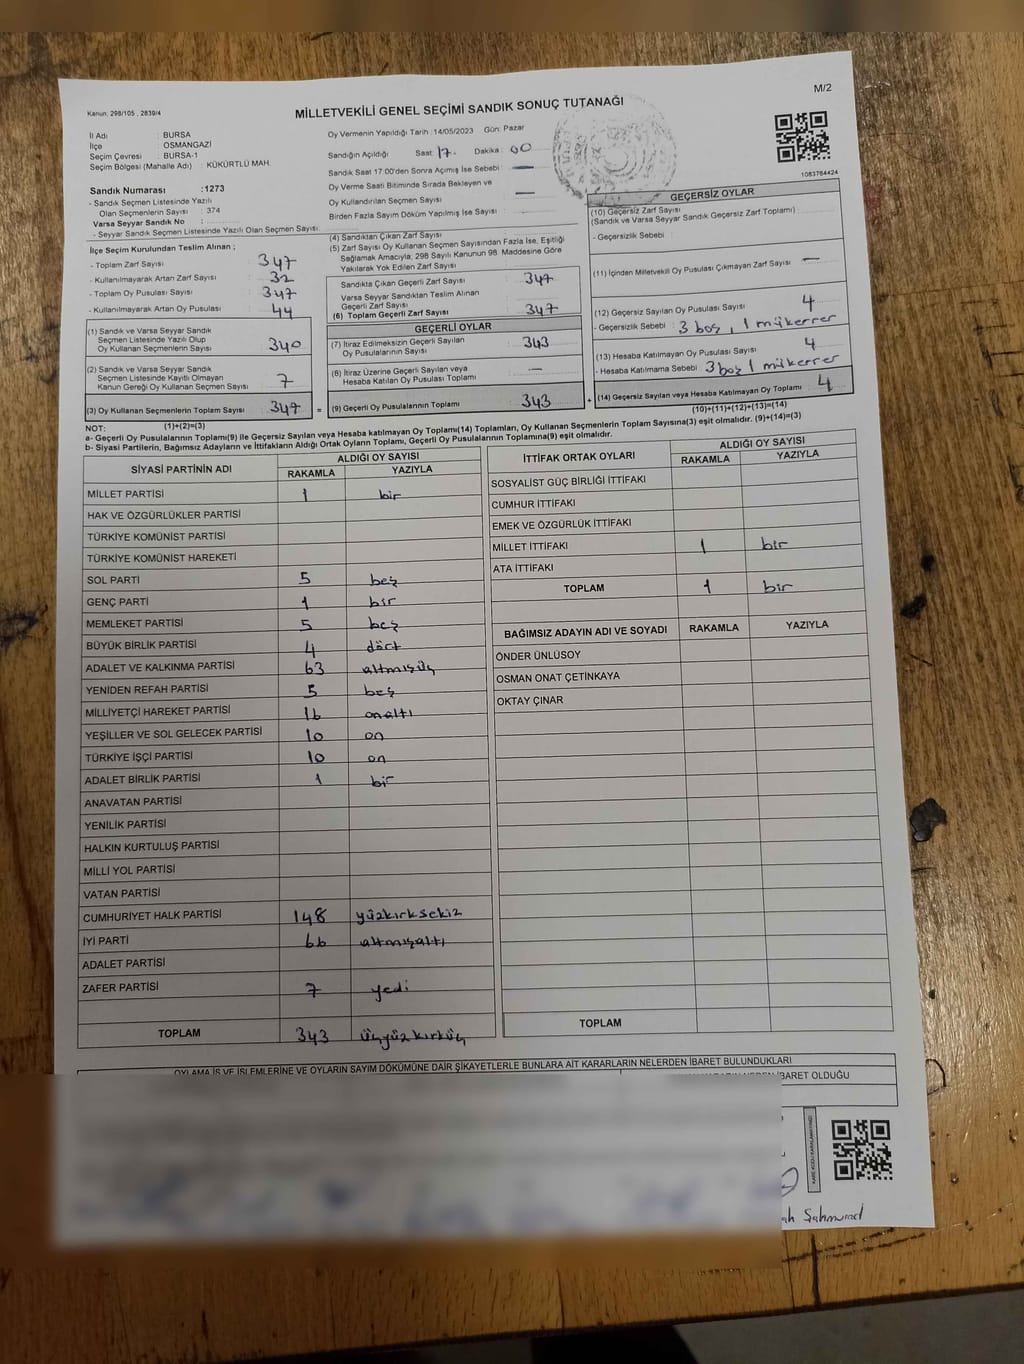 M/2
Kanun; 298/105 , 2839/4
MİLLETVEKİLİ GENEL SEÇİMİ SANDIK SONUÇ TUTANAĞI
İl Adı : BURSA
İlçe : OSMANGAZİ
Seçim Çevresi : BURSA-1
Seçim Bölgesi (Mahalle Adı) : KÜKÜRTLÜ MAH.
Sandık Numarası :1273
- Sandık Seçmen Listesinde Yazılı
Olan Seçmenlerin Sayısı : 374
Varsa Seyyar Sandık No :
- Seyyar Sandık Seçmen Listesinde Yazılı Olan Seçmen Sayısı:
Oy Vermenin Yapıldığı Tarih :14/05/2023 Gün: Pazar
Sandığın Açıldığı Saat: 17. Dakika: 00
Sandık Saat 17.00'den Sonra Açımış İse Sebebi : —
Oy Verme Saati Bitiminde Sırada Bekleyen ve
Oy Kullandırılan Seçmen Sayısı : —
Birden Fazla Sayım Döküm Yapılmış İse Sayısı :
1083764424
İlçe Seçim Kurulundan Teslim Alınan ;
- Toplam Zarf Sayısı : 347
- Kullanılmayarak Artan Zarf Sayısı : 32
- Toplam Oy Pusulası Sayısı : 347
- Kullanılmayarak Artan Oy Pusulası : 44
(1) Sandık ve Varsa Seyyar Sandık
Seçmen Listesinde Yazılı Olup
Oy Kullanan Seçmenlerin Sayısı : 340
(2) Sandık ve Varsa Seyyar Sandık
Seçmen Listesinde Kayıtlı Olmayan
Kanun Gereği Oy Kullanan Seçmen Sayısı : 7
(3) Oy Kullanan Seçmenlerin Toplam Sayısı : 347 =
(1)+(2)=(3)
(4) Sandıktan Çıkan Zarf Sayısı
(5) Zarf Sayısı Oy Kullanan Seçmen Sayısından Fazla İse, Eşitliği
Sağlamak Amacıyla, 298 Sayılı Kanunun 98. Maddesine Göre
Yakılarak Yok Edilen Zarf Sayısı
Sandıkta Çıkan Geçerli Zarf Sayısı : 347
Varsa Seyyar Sandıktan Teslim Alınan
Geçerli Zarf Sayısı
(6) Toplam Geçerli Zarf Sayısı : 347
GEÇERLİ OYLAR
(7) İtiraz Edilmeksizin Geçerli Sayılan
Oy Pusulalarının Sayısı : 343
(8) İtiraz Üzerine Geçerli Sayılan veya
Hesaba Katılan Oy Pusulası Toplamı : —
(9) Geçerli Oy Pusulalarının Toplamı : 343 +
GEÇERSİZ OYLAR
(10) Geçersiz Zarf Sayısı
(Sandık ve Varsa Seyyar Sandık Geçersiz Zarf Toplamı) :
- Geçersizlik Sebebi :
(11) İçinden Milletvekili Oy Pusulası Çıkmayan Zarf Sayısı : —
(12) Geçersiz Sayılan Oy Pusulası Sayısı : 4
- Geçersizlik Sebebi : 3 boş , 1 mükerrer
(13) Hesaba Katılmayan Oy Pusulası Sayısı : 4
- Hesaba Katılmama Sebebi : 3 boş 1 mükerrer
(14) Geçersiz Sayılan veya Hesaba Katılmayan Oy Toplamı : 4
(10)+(11)+(12)+(13)=(14)
NOT:
a- Geçerli Oy Pusulalarının Toplamı(9) ile Geçersiz Sayılan veya Hesaba katılmayan Oy Toplamı(14) Toplamları, Oy Kullanan Seçmenlerin Toplam Sayısına(3) eşit olmalıdır. (9)+(14)=(3)
b- Siyasi Partilerin, Bağımsız Adayların ve İttifakların Aldığı Ortak Oyların Toplamı, Geçerli Oy Pusulalarının Toplamına(9) eşit olmalıdır.
SİYASİ PARTİNİN ADI ALDIĞI OY SAYISI
RAKAMLA YAZIYLA
MİLLET PARTİSİ 1 bir
HAK VE ÖZGÜRLÜKLER PARTİSİ
TÜRKİYE KOMÜNİST PARTİSİ
TÜRKİYE KOMÜNİST HAREKETİ
SOL PARTİ 5 beş
GENÇ PARTİ 1 bir
MEMLEKET PARTİSİ 5 beş
BÜYÜK BİRLİK PARTİSİ 4 dört
ADALET VE KALKINMA PARTİSİ 63 altmışüç
YENİDEN REFAH PARTİSİ 5 beş
MİLLİYETÇİ HAREKET PARTİSİ 16 onaltı
YEŞİLLER VE SOL GELECEK PARTİSİ 10 on
TÜRKİYE İŞÇİ PARTİSİ 10 on
ADALET BİRLİK PARTİSİ 1 bir
ANAVATAN PARTİSİ
YENİLİK PARTİSİ
HALKIN KURTULUŞ PARTİSİ
MİLLİ YOL PARTİSİ
VATAN PARTİSİ
CUMHURİYET HALK PARTİSİ 148 yüzkırksekiz
İYİ PARTİ 66 altmışaltı
ADALET PARTİSİ
ZAFER PARTİSİ 7 yedi
TOPLAM 343 üçyüzkırküç
İTTİFAK ORTAK OYLARI ALDIĞI OY SAYISI
RAKAMLA YAZIYLA
SOSYALİST GÜÇ BİRLİĞİ İTTİFAKI
CUMHUR İTTİFAKI
EMEK VE ÖZGÜRLÜK İTTİFAKI
MİLLET İTTİFAKI 1 bir
ATA İTTİFAKI
TOPLAM 1 bir
BAĞIMSIZ ADAYIN ADI VE SOYADI RAKAMLA YAZIYLA
ÖNDER ÜNLÜSOY
OSMAN ONAT ÇETİNKAYA
OKTAY ÇINAR
TOPLAM
OYLAMA İŞ VE İŞLEMLERİNE VE OYLARIN SAYIM DÖKÜMÜNE DAİR ŞİKAYETLERLE BUNLARA AİT KARARLARIN NELERDEN İBARET BULUNDUKLARI
NEDEN İBARET OLDUĞU